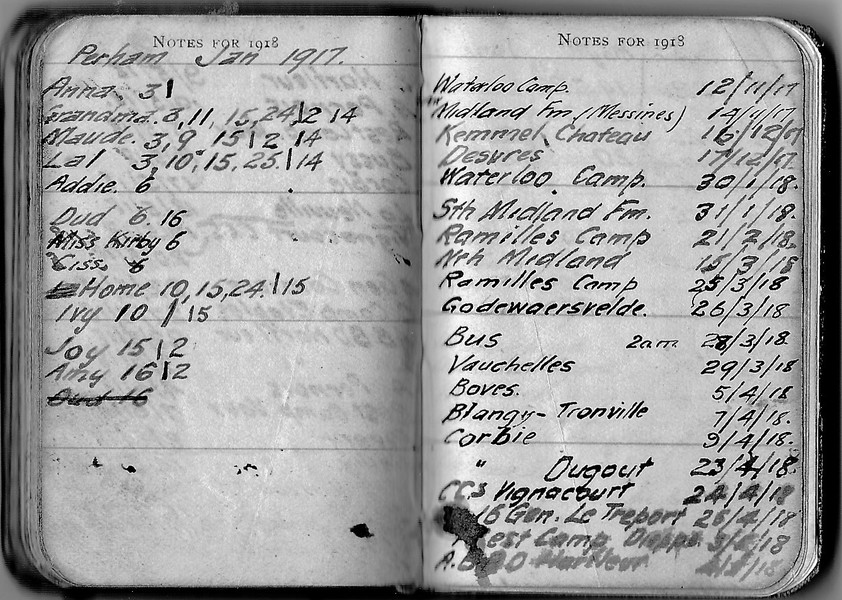 NOTES FOR 1918
Perham Jan 1917.
Anna. 3|
Grandma. 3,11, 15,24|2 14
Maude. 3,9 15|2 14
Lal 3,10,15,25.|14
Addie. 6
Dud 6. 16
Miss Kirby 6
Ciss. 6
Home 10,15,24.|15
Ivy 10 | 15
Joy 15|2
Amy 16|2
Dud 16
NOTES FOR 1918
Waterloo Camp. 12/11/17
Midland Fm (Messines) 14/11/17
Kemmel Chateau 16/12/17
Desvres 17/12/17
Waterloo Camp. 30/1/18.
Sth Midland Fm. 31/1/18.
Ramilles Camp 21/2/18.
Nth Midland 15/3/18
Ramilles Camp 25/3/18
Godewaersvelde. 26/3/18
Bus 2am 28/3/18
Vauchelles 29/3/18
Boves. 5/4/18
Blangy-Tronville 7/4/18.
Corbie 9/4/18.
" Dugout 23/4/18.
CCS Vignacourt 24/4/18
16 Gen. Le Treport 25/4/18
est Camp
A.